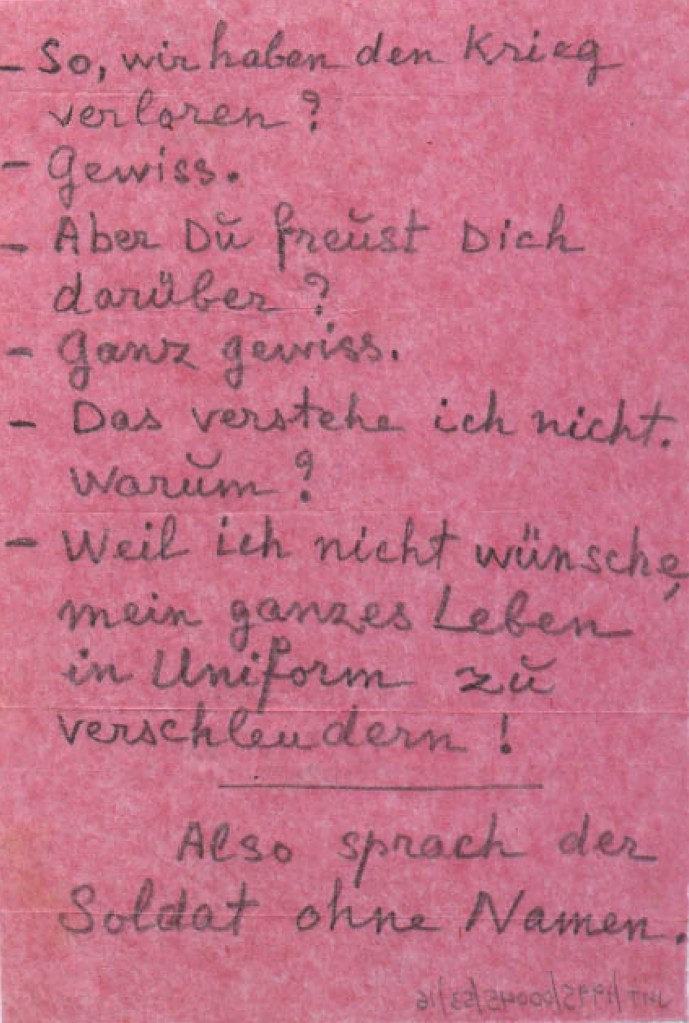 - So, wir haben den Krieg
verloren?
- Gewiss.
- Aber Du freust Dich
darüber?
- Ganz gewiss.
- Das verstehe ich nicht.
Warum?
- Weil ich nicht wünsche,
mein ganzes Leben
in Uniform zu
verschleudern!
Also sprach der
Soldat ohne Namen.